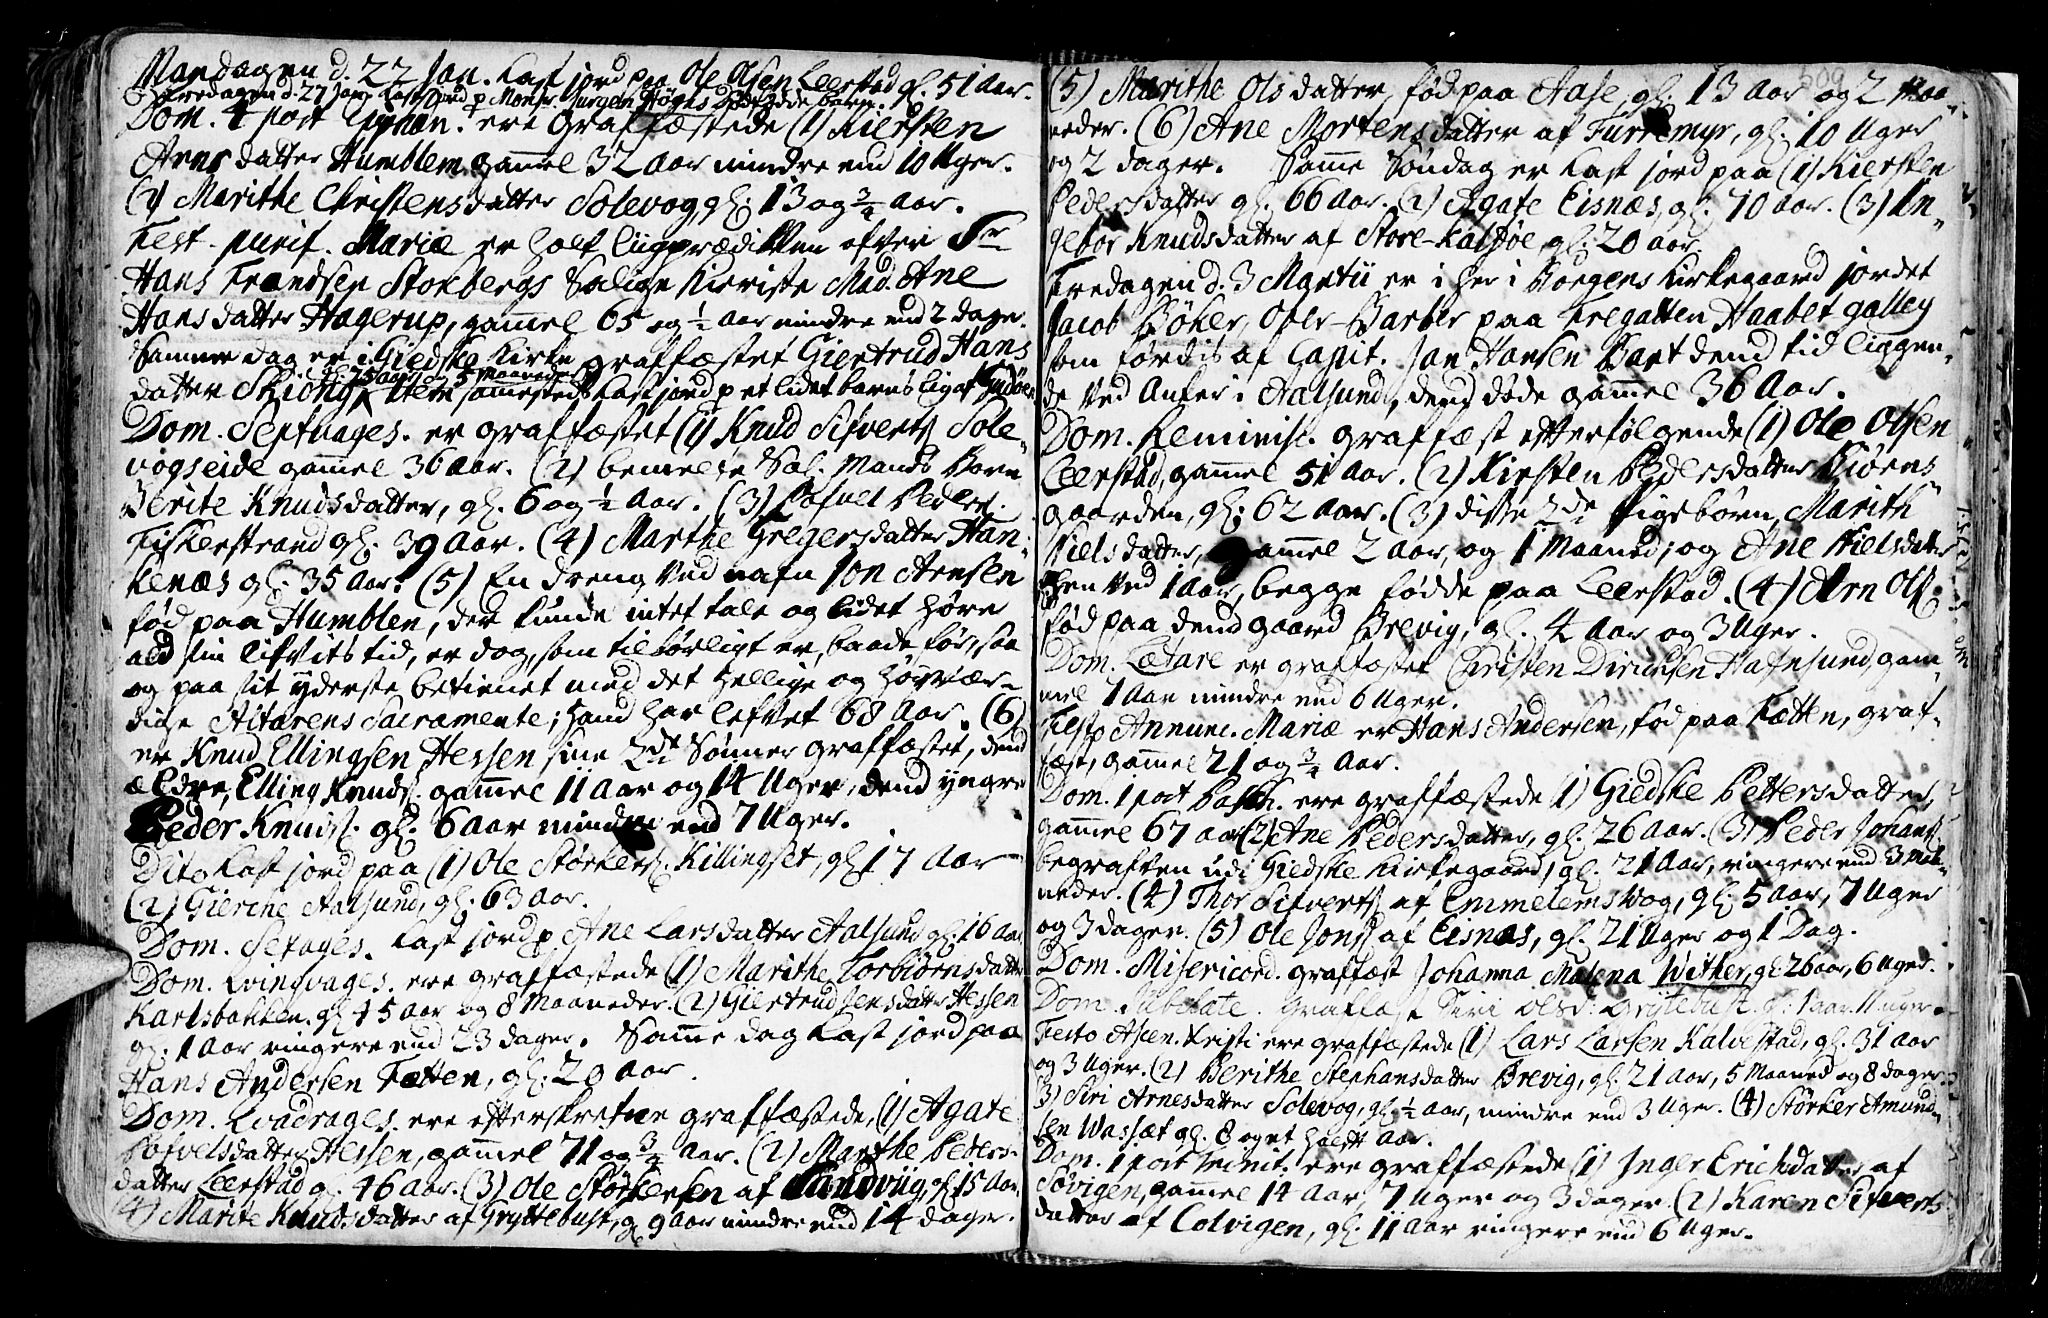 Mandagen d. 22 Jan. kast jord paa Ole Olsen Leerstad gl. 51 aar.
Fredagen d. 27 Jan. kast jord p Monsr. Jurgen Høghs dødfødde barn.
Dom. 4 post Epiphan. ere graffæstede (1) Kiersten
Arnsdatter Humblem gammel 32 aar mindre end 10 Uger.
(2) Marithe Christensdatter Solevog, gl. 13 og 3/4 aar.
Fest. purif. Mariæ er holt liigprædikken ofver Sr
Hans Frandsen Stoxbergs Salige Kieriste Mad. Ane
Hansdatter Hagerup, gammel 65 og 1/2 aar mindre end 2 dage.
Samme dag er i Giedske Kirke graffæstet Giertrud Hans
gl. 75 aar og 5 maaneder
datter Skiong item samestedz kast jord p et lidet barns liig af
Dom. Septuages. er graffæstet (1) Knud Sifverts Sole-
vogseide gammel 36 aar. (2) bemelte Sal. Mands Barn
Berite Knudsdatter, gl. 6 og 1/2 aar. (3) Pofvel Peders.
Fiskerstrand gl. 39 aar. (4) Marthe Gregersdatter Han-
kenæs gl. 35 aar. (5) En dreng ved nafn Jon Arnsen
fød paa Humblen, der kunde intet tale og lidet høre
ald sin lifvits tid, er dog, som tilbørligt er, baade før, saa
og paa sit yderste betienet med det hellige og høyvær-
dige Altarens Sacramente; hand har lefvet 68 aar. (6)
er Knud Ellingsen Hessen sine 2de Sønner graffæstet, dend
ældre, Elling Knuds. gammel 11 aar og 14 Uger, dend yngre
Peder Knuds. gl. 6 aar mindre end 7 Uger.
Dito kast jord paa (1) Ole Størkers. Killingset, gl. 17 aar
(2) Gierche Aalsund, gl. 63 aar.
Dom. Sexages. kast jord p Ane Larsdatter Aalsund gl. 16 aar
Dom. Qvinqvages. ere graffæstede (1) Marithe Torbiørnsdatter
Karlsbakken gl. 45 aar og 8 Maaneder. (2) Giertrud Jensdatter Hessen
gl. 1 aar ringere end 23 dager. Samme dag kast jord paa
Hans Andersen Fætten, gl. 20 aar.
Dom. Qvadrages. ere efterskrefne graffæstede, (1) Agate
Pofvelsdatter Hessen, gammel 71 og 3/4 aar. (2) Marthe Peders-
datter Leerstad gl. 46 aar. (3) Ole Størkersen af Sandviig, gl. 15 aar.
(4) Marite Knudsdatter af Gryttebust, gl. 9 aar mindre end 14 dager.
509
(5) Marithe Olsdatter, fød paa Aase, gl. 13 aar og 2 Maa-
neder. (6) Ane Mortensdatter af Furremyr, gl. 10 Uger
og 2 dager. Samme Søndag er kast jord paa (1) Kiersten
Pedersdatter gl. 66 aar. (2) Agate Eisnæs, gl. 70 aar. (3) In-
gebor Knudsdatter af Store-Kalføe, gl. 20 aar.
Fredagen d. 3 Martii er i her i Borgens Kirkegaard jordet
Jacob Bøker, Ober-Barber paa Fregatten Haabet galley
som førdis af Capit. Jan Hansen Bart dend tid liggen-
de ved Anker i Aalsund, dend døde gammel 36 aar.
Dom. Reminisc. graffæst efterfølgende (1) Ole Olsen
Leerstad, gammel 51 aar. (2) Kirsten Pedersdatter Biørns-
gaarden, gl. 62 aar. (3) disse 2de Pigebørn, Marith
Nielsdatter, gammel 2 aar, og 1 Maaned; og Ane Nielsdatter
hen ved 1 aar, begge fødde paa Leerstad. (4) Arn Ols.
fød paa dend gaard Brevig, gl. 4 aar og 3 Uger.
Dom. Lætare er graffæstet Christen Dircksen Hafnsund, gam-
mel 1 aar mindre end 6 Uger.
Festo Annunc. Mariæ er Hans Andersen, fød paa Fætten, graf-
fæst, gammel 21 og 3/4 aar.
Dom. 1 post Pasch. ere graffæstede (1) Giedske Pettersdatter,
gammel 67 aar (2) Ane Pedersdatter, gl. 26 aar. (3) Peder Johans.
begrafven udi Giedske Kirkegaard, gl. 21 aar, ringere end 3 Maa-
neder. (4) Thor Sifverts. af Emmelems Vog, gl. 5 aar, 7 Uger
og 3 dager. (5) Ole Jons. af Eisnæs, gl. 21 Uger og 1 Dag.
Dom. Misericord. graffæst Johanna Malena Wether, gl. 26 aar, 6 Uger.
Dom. Jubilate. Graffæst Siri Olsd. gl. 1 aar 11 uger.
Festo Ascen. Kristi ere graffæstede (1) Lars Larsen Kalvestad, gl. 31 aar
og 3 Uger. (2) Berithe Stephansdatter Brevig, gl. 21 aar, 5 Maaned og 8 dager.
3) Siri Arnesdatter Solevog, gl. 1/2 aar, mindre end 3 Uger. (4) Størker Amund-
sen Wassæt gl. 8 og et halft aar.
Dom. 1 post Trinit. ere graffæstede (1) Inger Erichsdatter af
Søvigen, gammel 14 aar, 7 Uger og 3 dager. (2) Karen Sifverts-
datter af Colvigen, gl. 11 aar ringere end 6 Uger.